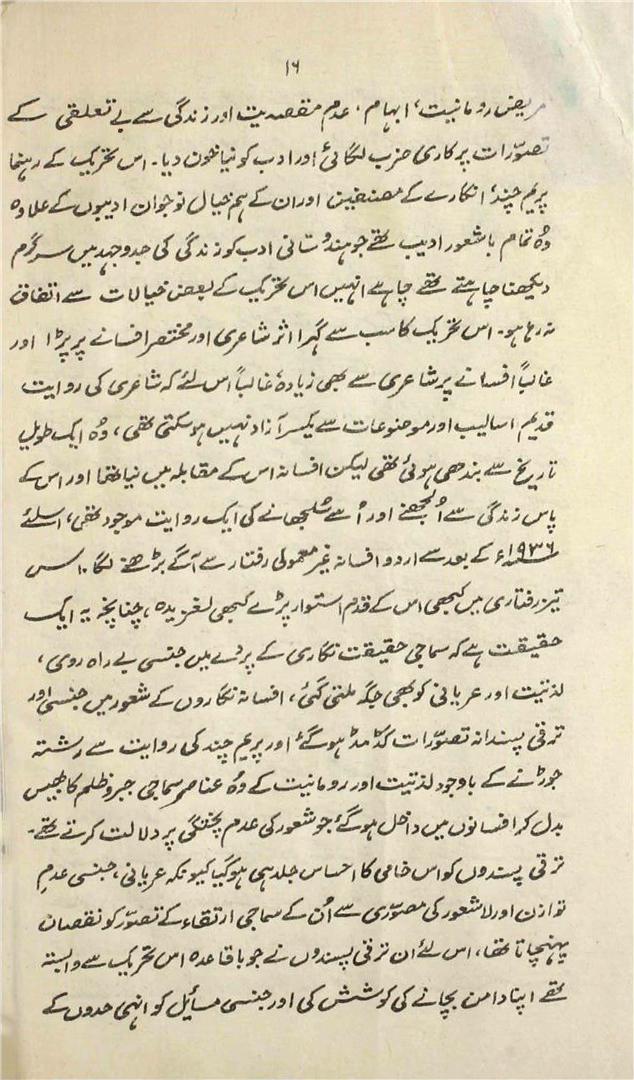 ۱۶
مریض رومانیت، ابہام، عدم مقصدیت اور زندگی سے بے تعلقی کے
تصوّرات پر کاری ضرب لگائی اور ادب کو نیا خون دیا۔ اس تحریک کے رہنما
پریم چند، انگارے کے مصنفین اور ان کے ہم خیال نوجوان ادیبوں کے علاوہ
وہ تمام باشعور ادیب تھے جو ہندوستانی ادب کو زندگی کی جدوجہد میں سرگرم
دیکھنا چاہتے تھے چاہے انہیں اس تحریک کے بعض خیالات سے اتفاق
نہ رہا ہو۔ اس تحریک کا سب سے گہرا اثر شاعری اور مختصر افسانے پر پڑا اور
غالباً افسانے پر شاعری سے بھی زیادہ غالباً اس لئے کہ شاعری کی روایت
قدیم اسالیب اور موضوعات سے یکسر آزاد نہیں ہو سکتی تھی، وہ ایک طویل
تاریخ سے بندھی ہوئی تھی لیکن افسانہ اس کے مقابلہ میں نیا تھا اور اس کے
پاس زندگی سے اُلجھنے اور اُسے سُلجھانے کی ایک روایت موجود تھی، اسلئے
۱۹۳۶ء کے بعد سے اردو افسانہ غیر معمولی رفتار سے آگے بڑھنے لگا۔ اس
تیز رفتاری میں کبھی اس کے قدم استوار پڑے کبھی لغزیدہ، چنانچہ یہ ایک
حقیقت ہے کہ سماجی حقیقت نگاری کے پردے میں جنسی بے راہ روی،
لذتیت اور عریانی کو بھی جگہ ملتی گئی، افسانہ نگاروں کے شعور میں جنسی اور
ترقی پسندانہ تصوّرات گڈمڈ ہو گئے اور پریم چند کی روایت سے رشتہ
جوڑنے کے باوجود لذتیت اور رومانیت کے وہ عناصر سماجی جبر و ظلم کا بھیس
بدل کر افسانوں میں داخل ہو گئے جو شعور کی عدم پختگی پر دلالت کرتے تھے۔
ترقی پسندوں کو اس خامی کا احساس جلد ہی ہو گیا کیونکہ عریانی، جنسی عدم
توازن اور لاشعور کی مصوّری سے اُن کے سماجی ارتقاء کے تصوّر کو نقصان
پہنچاتا تھا، اس لئے ان ترقی پسندوں نے جو باقاعدہ اس تحریک سے وابستہ
تھے اپنا دامن بچانے کی کوشش کی اور جنسی مسائل کو انہی حدوں کے